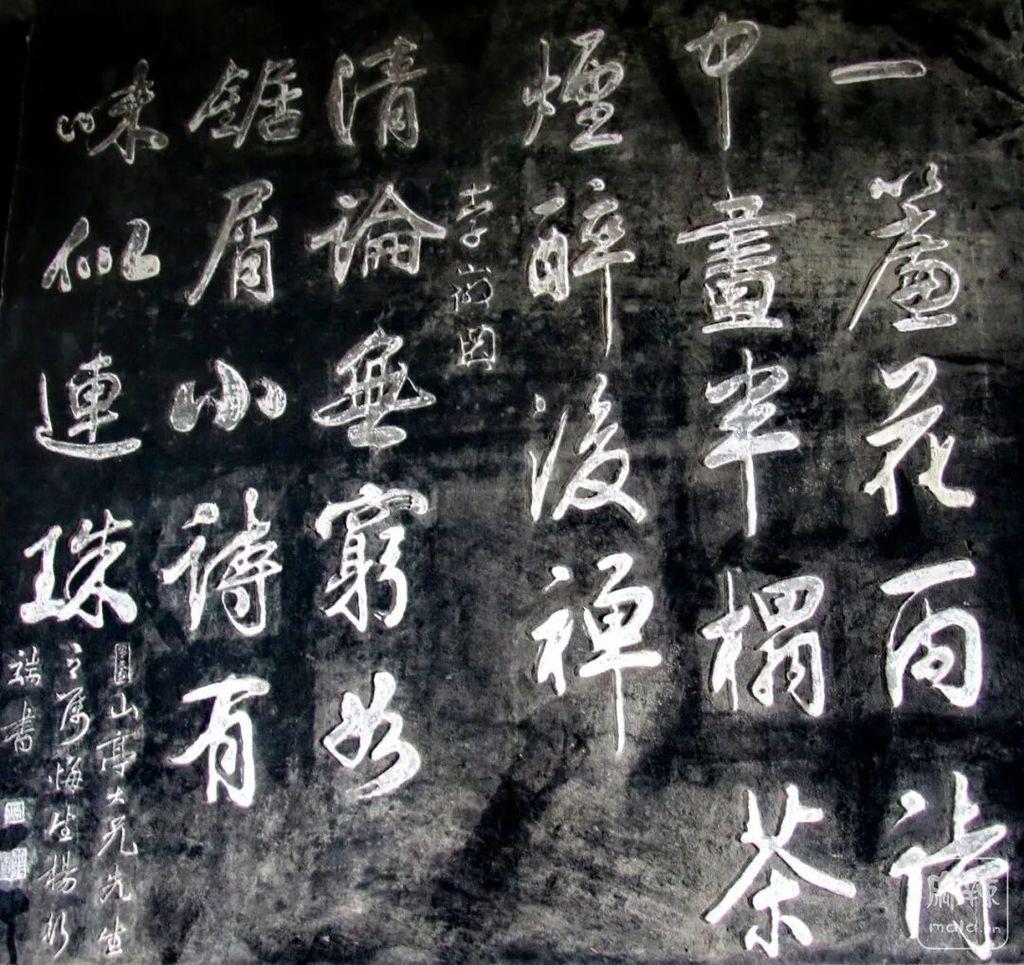 一簾花雨詩
中畫半榻茶
煙醉後禪
清論無窮如
鋸屑小詩有
味似連珠
山亭大兄先生
之屬悔生楊
端書
麻辣
mala.cn